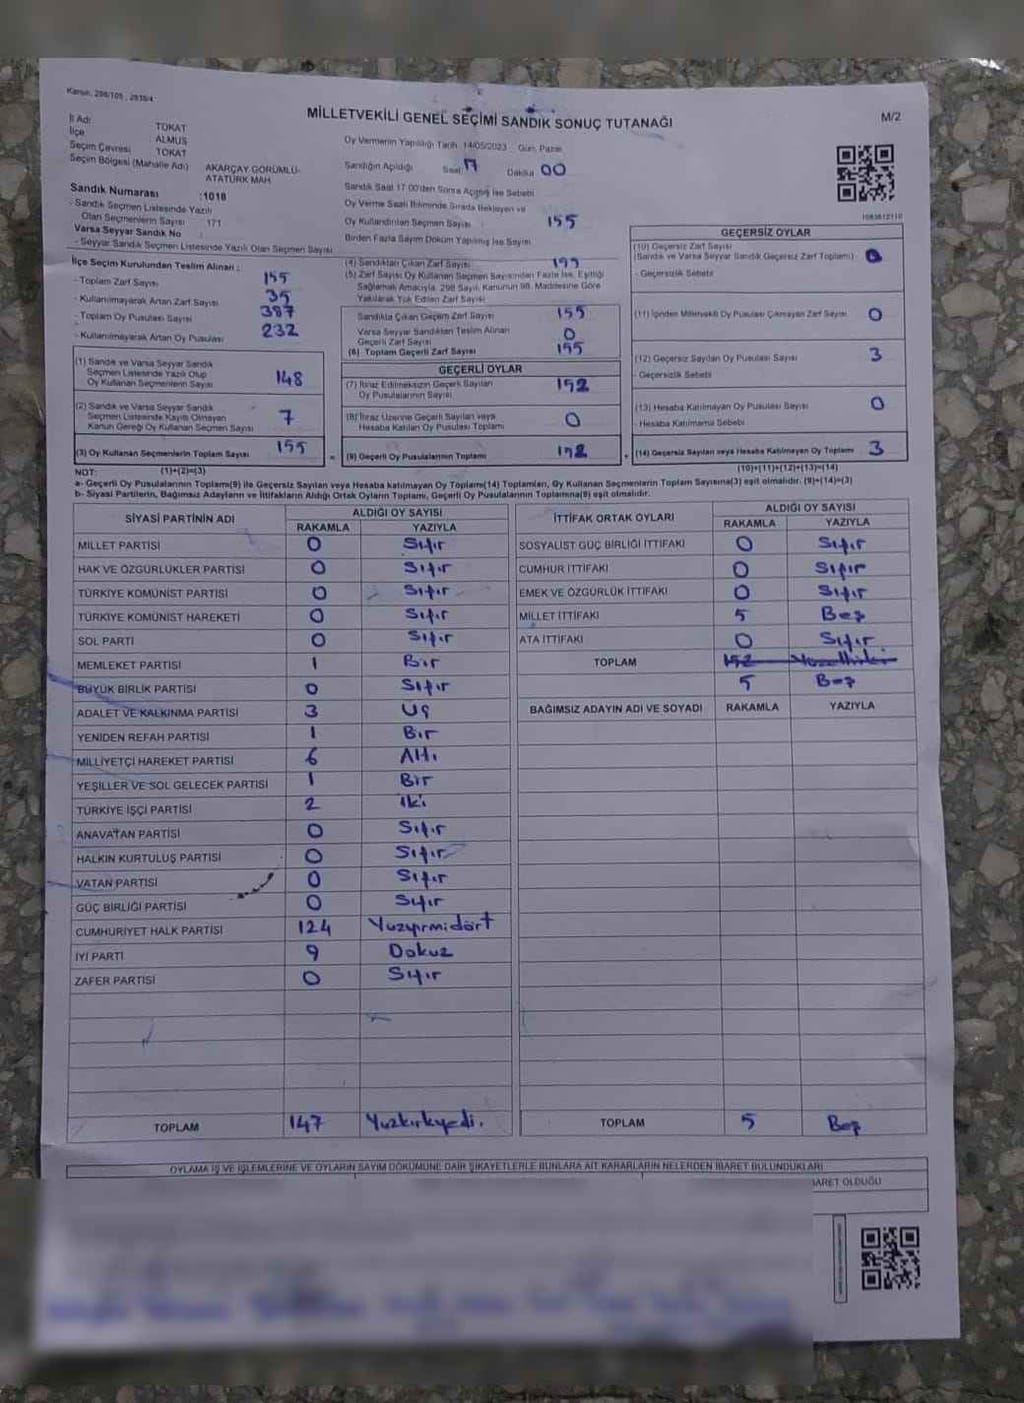 Kanun, 298/105, 2839/4
MİLLETVEKİLİ GENEL SEÇİMİ SANDIK SONUÇ TUTANAĞI
M/2
İl Adı TOKAT
İlçe ALMUS
Seçim Çevresi TOKAT
Seçim Bölgesi (Mahalle Adı) AKARÇAY GÖRÜMLÜ-
ATATÜRK MAH
Sandık Numarası :1018
- Sandık Seçmen Listesinde Yazılı
Olan Seçmenlerin Sayısı 171
Varsa Seyyar Sandık No
- Seyyar Sandık Seçmen Listesinde Yazılı Olan Seçmen Sayısı
Oy Vermenin Yapıldığı Tarih 14/05/2023 Gün Pazar
Sandığın Açıldığı Saat 17 Dakika 00
Sandık Saat 17.00'den Sonra Açılmış İse Sebebi
Oy Verme Saati Bitiminde Sırada Bekleyen ve
Oy Kullandırılan Seçmen Sayısı 155
Birden Fazla Sayım Döküm Yapılmış İse Sayısı
1083612110
İlçe Seçim Kurulundan Teslim Alınan :
- Toplam Zarf Sayısı
- Kullanılmayarak Artan Zarf Sayısı 35
- Toplam Oy Pusulası Sayısı 387
- Kullanılmayarak Artan Oy Pusulası 232
(1) Sandık ve Varsa Seyyar Sandık
Seçmen Listesinde Yazılı Olup
Oy Kullanan Seçmenlerin Sayısı 148
(2) Sandık ve Varsa Seyyar Sandık
Seçmen Listesinde Kayıtlı Olmayan
Kanun Gereği Oy Kullanan Seçmen Sayısı 7
(3) Oy Kullanan Seçmenlerin Toplam Sayısı 155
(4) Sandıktan Çıkan Zarf Sayısı
(5) Zarf Sayısı Oy Kullanan Seçmen Sayısından Fazla İse, Eşitliği
Sağlamak Amacıyla, 298 Sayılı Kanunun 98. Maddesine Göre
Yakılarak Yok Edilen Zarf Sayısı
Sandıkta Çıkan Geçerli Zarf Sayısı 155
Varsa Seyyar Sandıktan Teslim Alınan
Geçerli Zarf Sayısı 0
(6) Toplam Geçerli Zarf Sayısı 155
GEÇERLİ OYLAR
(7) İtiraz Edilmeksizin Geçerli Sayılan
Oy Pusulalarının Sayısı 152
(8) İtiraz Üzerine Geçerli Sayılan veya
Hesaba Katılan Oy Pusulası Toplamı 0
= (9) Geçerli Oy Pusulalarının Toplamı 152
GEÇERSİZ OYLAR
(10) Geçersiz Zarf Sayısı
(Sandık ve Varsa Seyyar Sandık Geçersiz Zarf Toplamı)
- Geçersizlik Sebebi
(11) İçinden Milletvekili Oy Pusulası Çıkmayan Zarf Sayısı 0
(12) Geçersiz Sayılan Oy Pusulası Sayısı 3
- Geçersizlik Sebebi
(13) Hesaba Katılmayan Oy Pusulası Sayısı 0
- Hesaba Katılmama Sebebi
+ (14) Geçersiz Sayılan veya Hesaba Katılmayan Oy Toplamı 3
NOT: (1)+(2)=(3)
(10)+(11)+(12)+(13)=(14)
a- Geçerli Oy Pusulalarının Toplamı(9) ile Geçersiz Sayılan veya Hesaba katılmayan Oy Toplamı(14) Toplamları, Oy Kullanan Seçmenlerin Toplam Sayısına(3) eşit olmalıdır. (9)+(14)=(3)
b- Siyasi Partilerin, Bağımsız Adayların ve İttifakların Aldığı Ortak Oyların Toplamı, Geçerli Oy Pusulalarının Toplamına(9) eşit olmalıdır.
SİYASİ PARTİNİN ADI ALDIĞI OY SAYISI
RAKAMLA YAZIYLA
MİLLET PARTİSİ 0 Sıfır
HAK VE ÖZGÜRLÜKLER PARTİSİ 0 Sıfır
TÜRKİYE KOMÜNİST PARTİSİ 0 Sıfır
TÜRKİYE KOMÜNİST HAREKETİ 0 Sıfır
SOL PARTİ 0 Sıfır
MEMLEKET PARTİSİ 1 Bir
BÜYÜK BİRLİK PARTİSİ 0 Sıfır
ADALET VE KALKINMA PARTİSİ 3 Üç
YENİDEN REFAH PARTİSİ 1 Bir
MİLLİYETÇİ HAREKET PARTİSİ 6 Altı
YEŞİLLER VE SOL GELECEK PARTİSİ 1 Bir
TÜRKİYE İŞÇİ PARTİSİ 2 iki
ANAVATAN PARTİSİ 0 Sıfır
HALKIN KURTULUŞ PARTİSİ 0 Sıfır
VATAN PARTİSİ 0 Sıfır
GÜÇ BİRLİĞİ PARTİSİ 0 Sıfır
CUMHURİYET HALK PARTİSİ 124 Yüzyirmidört
İYİ PARTİ 9 Dokuz
ZAFER PARTİSİ 0 Sıfır
TOPLAM 147 Yüzkırkyedi.
İTTİFAK ORTAK OYLARI ALDIĞI OY SAYISI
RAKAMLA YAZIYLA
SOSYALİST GÜÇ BİRLİĞİ İTTİFAKI 0 Sıfır
CUMHUR İTTİFAKI 0 Sıfır
EMEK VE ÖZGÜRLÜK İTTİFAKI 0 Sıfır
MİLLET İTTİFAKI 5 Beş
ATA İTTİFAKI 0 Sıfır
TOPLAM 152
5 Beş
BAĞIMSIZ ADAYIN ADI VE SOYADI RAKAMLA YAZIYLA
TOPLAM 5 Beş
OYLAMA İŞ VE İŞLEMLERİNE VE OYLARIN SAYIM DÖKÜMÜNE DAİR ŞİKAYETLERLE BUNLARA AİT KARARLARIN NELERDEN İBARET BULUNDUKLARI
İBARET OLDUĞU